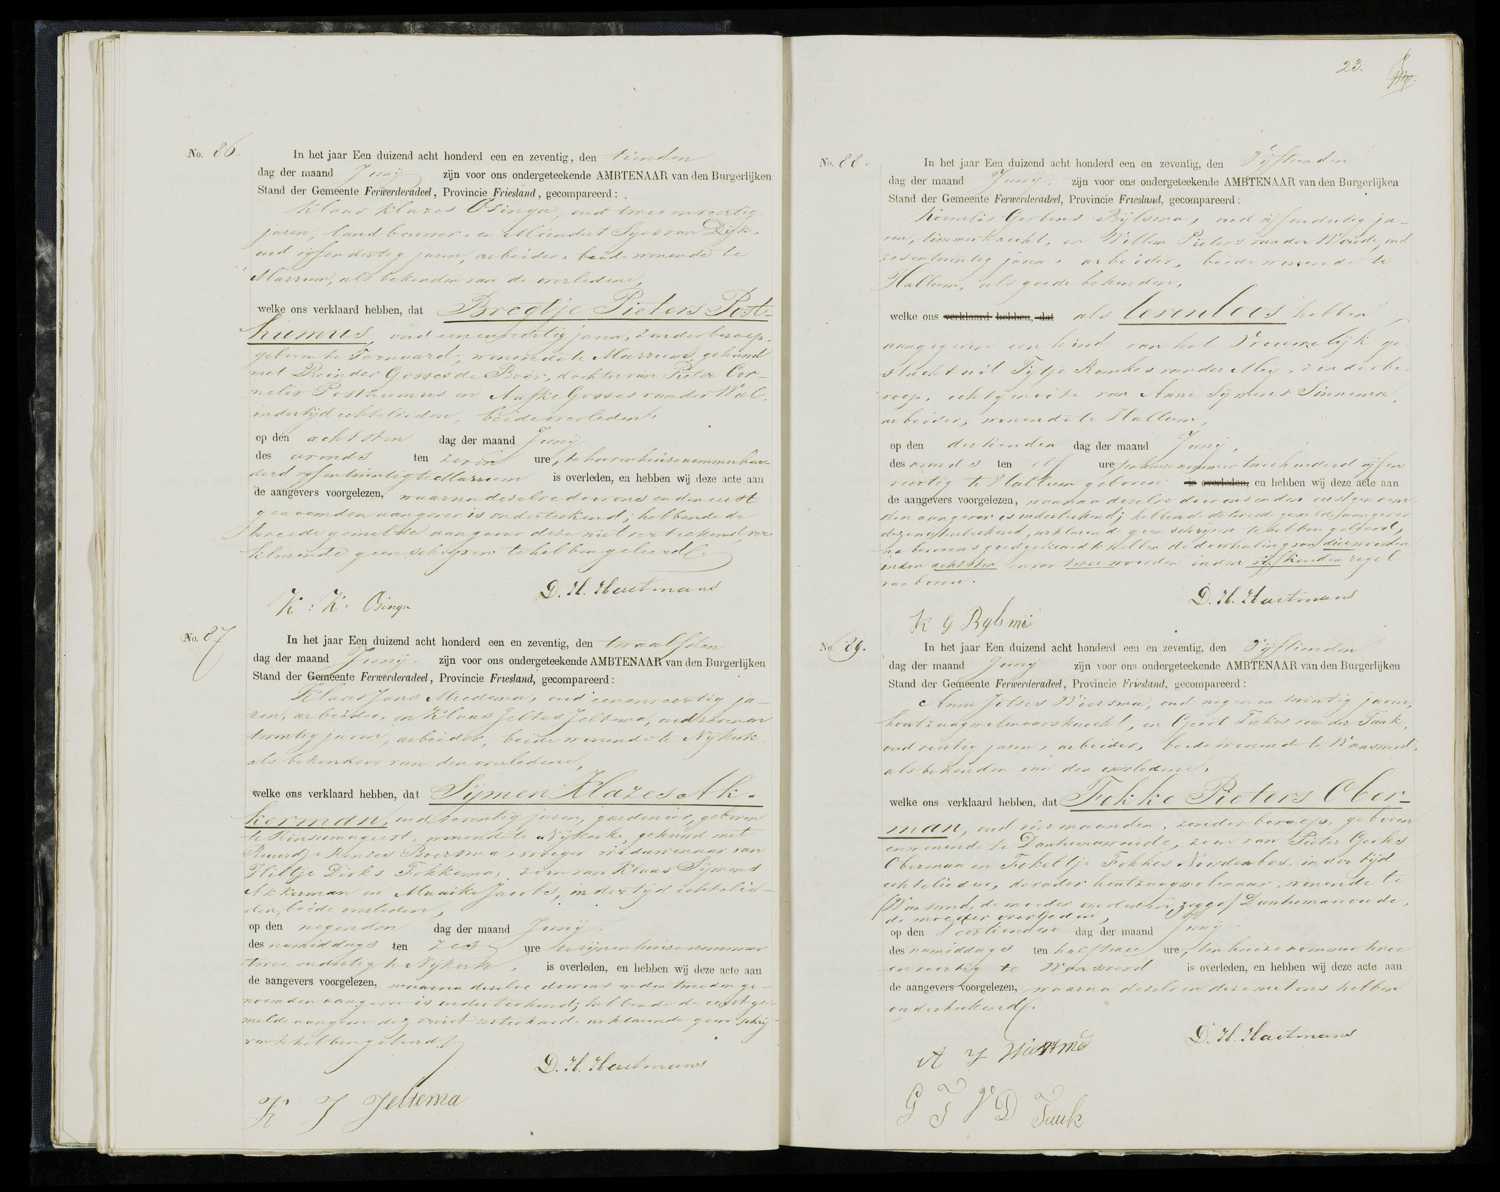 No. 86.
In het jaar Een duizend acht honderd een en zeventig, den tienden
dag der maand Junij zijn voor ons ondergeteekende AMBTENAAR van den Burgerlijken
Stand der Gemeente Ferwerderadeel, Provincie Friesland, gecompareerd:
Klaas Klazes Osinga, oud twee en veertig
jaren, landbouwer, en Meindert Sjoers van Dijk,
oud vijfendertig jaren, arbeider, beide wonende te
Marrum, als bekenden van de overledene,
welke ons verklaard hebben, dat Bregtje Pieters Post-
humus, oud jaren, zonder beroep,
geboren te Ternaard, wonende te Marrum, gehuwd
met Reinder Gosses de Boer, dochter van Pieter Cor-
nelis Posthumus en Aafke Gosses van der Wal,
in der tijd echtelieden, beide overleden,
op den achtsten dag der maand Junij
des avonds ten zeven ure, te haren huize nummer hon-
derd vijfentwintig te Marrum is overleden, en hebben wij deze acte aan
de aangevers voorgelezen, waarna dezelve door ons en den eerst
genoemden aangever is onderteekend; hebbende de
tweede gemelde aangever deze niet onderteekend, ver-
klarende geen schrijven te hebben geleerd.
D. H. Hartmans
K. K. Osinga
No. 87
In het jaar Een duizend acht honderd een en zeventig, den twaalfden
dag der maand Junij zijn voor ons ondergeteekende AMBTENAAR van den Burgerlijken
Stand der Gemeente Ferwerderadeel, Provincie Friesland, gecompareerd:
Klaas Jans Miedema, oud een en veertig ja-
ren, arbeider, en Klaas Jeltes Jeltema, oud zeven en
twintig jaren, arbeider, beide wonende te Nijkerk
als bekenden van den overledene,
welke ons verklaard hebben, dat Sijmen Klazes Ak-
kerman, oud zeventig jaren, gardenier, geboren
te Rinsumageest, wonende te Nijkerk, gehuwd met
Boersma, vroeger weduwnaar van
Hiltje Dirks Fokkema, zoon van Klaas Sijmens
Akkerman en Maaike Jacobs, in der tijd echtelie-
den, beide overleden,
op den negenden dag der maand Junij
des namiddags ten zes ure te zijnen huize nummer
twee en dertig te Nijkerk, is overleden, en hebben wij deze acte aan
de aangevers voorgelezen, waarna dezelve door ons en den tweeden ge-
noemden aangever is onderteekend; hebbende de eerst ge-
melde aangever deze niet onderteekend, verklarende geen schrij-
ven te hebben geleerd.
D. H. Hartmans
K J Jeltema
22.
No. 88.
In het jaar Een duizend acht honderd een en zeventig, den vijftienden
dag der maand Junij zijn voor ons ondergeteekende AMBTENAAR van den Burgerlijken
Stand der Gemeente Ferwerderadeel, Provincie Friesland, gecompareerd:
Kornelis Gerbens Bijlsma, oud vijfendertig ja-
ren, timmerknecht, en Willem Pieters van der Woude, oud
zesentwintig jaren, arbeider, beide wonende te
Hallum, als goede bekenden,
welke ons verklaard hebben, dat als levenloos hebben
aangegeven een kind van het Vrouwelijk ge-
slacht uit Tijtje Ramkes van der Meij, zonder be-
roep, echtgenoote van Anne Sijmens Sinnema,
arbeider, wonende te Hallum,
op den dertienden dag der maand Junij,
des avonds ten elf ure in huize nummer twee honderd vijf en
veertig te Hallum geboren is overleden, en hebben wij deze acte aan
de aangevers voorgelezen, waarna dezelve door ons en den eerstgenoem-
den aangever is onderteekend; hebbende de tweede gemelde aangever
deze niet onderteekend, verklarende geen schrijven te hebben geleerd,
na bevorens goedgekeurd te hebben de doorhaling van drie woorden
in den achtsten en van twee woorden in den vijftienden regel
van boven.
D. H. Hartmans
K G Bylsma
No. 89.
In het jaar Een duizend acht honderd een en zeventig, den vijftienden
dag der maand Junij zijn voor ons ondergeteekende AMBTENAAR van den Burgerlijken
Stand der Gemeente Ferwerderadeel, Provincie Friesland, gecompareerd:
Anne Jelses Wiersma, oud negen en twintig jaren,
houtzaagmolenaarsknecht, en Geert Tiekes van der Tuuk,
oud veertig jaren, arbeider, beide wonende te Wanswerd,
als bekenden van den overledene,
welke ons verklaard hebben, dat Fokke Pieters Ober-
man, oud vier maanden, zonder beroep, geboren
en wonende te Dantumawoude, zoon van Pieter Gerkes
Oberman en Fokeltje Fokkes Noordenbos, in der tijd
echtelieden, de vader houtzaagmolenaar, wonende te
Wanswerd, de moeder overleden, zegge Dantumawoude,
de moeder overleden,
op den veertienden dag der maand Junij
des namiddags ten half twee ure, ten huize nummer twee
en veertig te Wanswerd is overleden, en hebben wij deze acte aan
de aangevers voorgelezen, waarna dezelve deze met ons hebben
onderteekend.
D. H. Hartmans
A J Wiersma
G T V D Tuuk